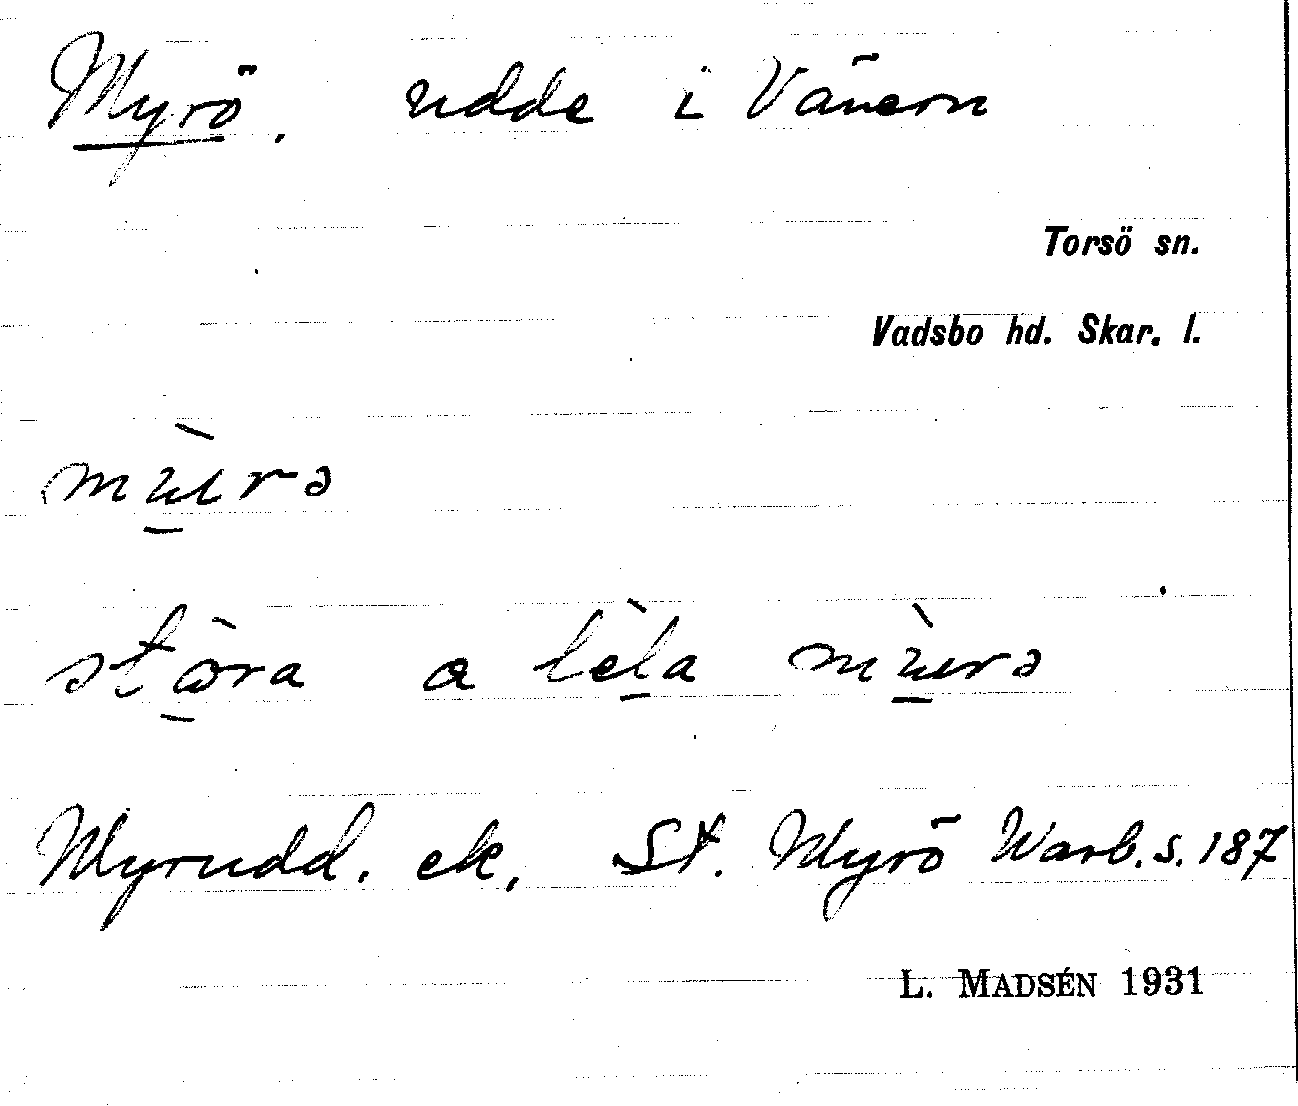 Myrö. udde i Vänern
Torsö sn.
Vadsbo hd. Skar. l.
mùrə
stòra a lèla mùrə
Myrudd. ek. St. Myrö Warb. s. 187
L. MADSÉN 1931